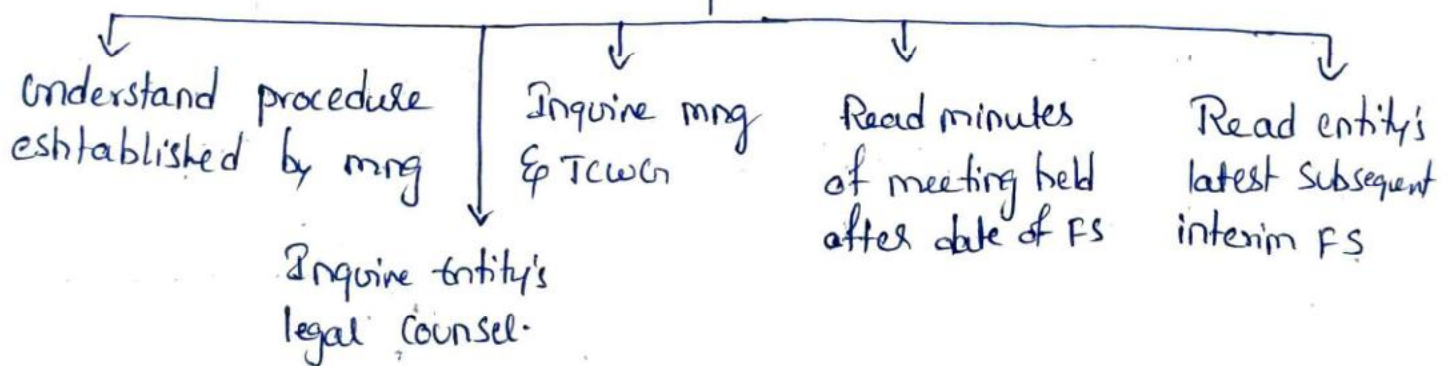 understand procedure
eshtablished by mng
Inquire Entity's
legal Counsel.
Inquire mng
& TCWG
Read minutes
of meeting held
after date of FS
Read entity's
latest subsequent
interim FS